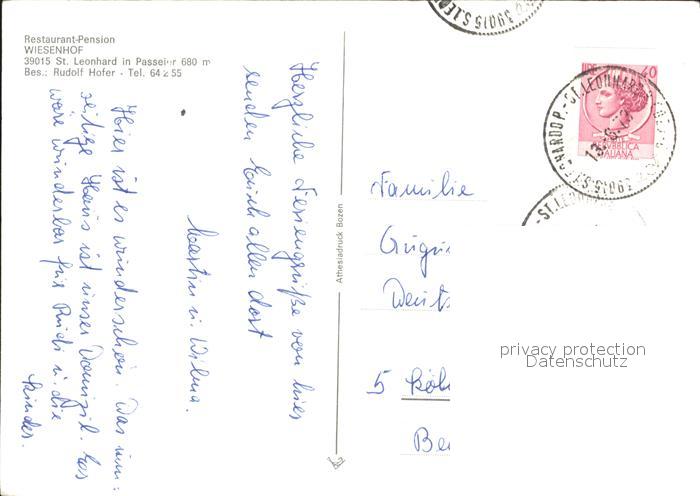 Restaurant-Pension
WIESENHOF
39015 St. Leonhard in Passeier 680 m
Bes.: Rudolf Hofer - Tel. 64 2 55
Herzliche Feriengrüße von hier
senden Euch allen dort
Martin u. Wilma.
Hier ist es wunderschön. Das um-
seitige Haus ist unser Domizil. Es
wäre wunderbar für Rudi u. die
Kinder.
Athesiadruck Bozen
Familie
Augu
Deuts
5 Köl
Be
LIRE 40
REPUBBLICA
ITALIANA
ST. LEONHARD
39015 S.
13.
39015 S.L
ST. LEONH
privacy protection
Datenschutz